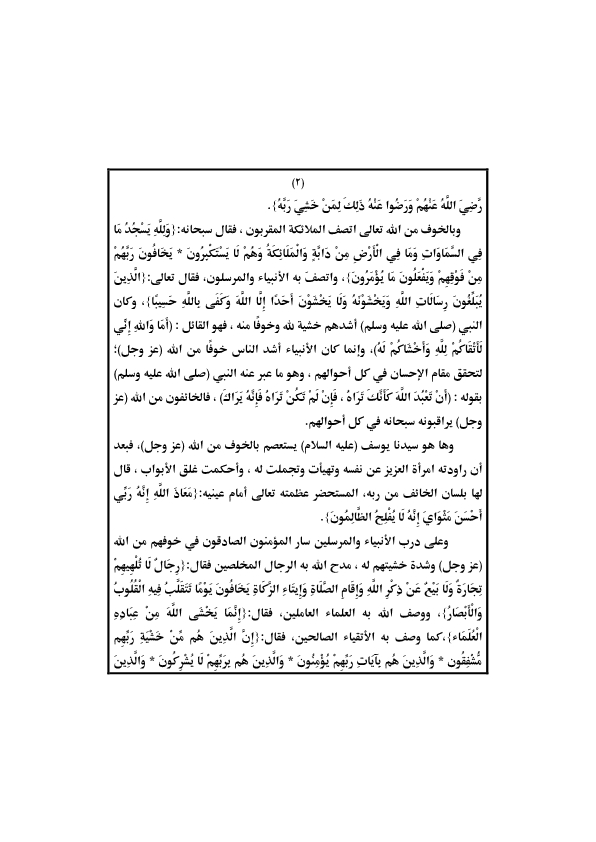 (٢)
رَّضِيَ اللَّهُ عَنْهُمْ وَرَضُوا عَنْهُ ذَلِكَ لِمَنْ خَشِيَ رَبَّهُ}.
وبالخوف من الله تعالى اتصف الملائكة المقربون ، فقال سبحانه:{وَلِلَّهِ يَسْجُدُ مَا
فِي السَّمَاوَاتِ وَمَا فِي الْأَرْضِ مِنْ دَابَّةٍ وَالْمَلَائِكَةُ وَهُمْ لَا يَسْتَكْبِرُونَ * يَخَافُونَ رَبَّهُمْ
مِنْ فَوْقِهِمْ وَيَفْعَلُونَ مَا يُؤْمَرُونَ}، واتصف به الأنبياء والمرسلون، فقال تعالى:{الَّذِينَ
يُبَلِّغُونَ رِسَالَاتِ اللَّهِ وَيَخْشَوْنَهُ وَلَا يَخْشَوْنَ أَحَدًا إِلَّا اللَّهَ وَكَفَى بِاللَّهِ حَسِيبًا}، وكان
النبي (صلى الله عليه وسلم) أشدهم خشية لله وخوفًا منه ، فهو القائل : (أَمَا وَاللهِ إِنِّي
لَأَتْقَاكُمْ لِلَّهِ وَأَخْشَاكُمْ لَهُ)، وإنما كان الأنبياء أشد الناس خوفًا من الله (عز وجل)؛
لتحقق مقام الإحسان في كل أحوالهم ، وهو ما عبر عنه النبي (صلى الله عليه وسلم)
بقوله : (أَنْ تَعْبُدَ اللَّهَ كَأَنَّكَ تَرَاهُ ، فَإِنْ لَمْ تَكُنْ تَرَاهُ فَإِنَّهُ يَرَاكَ) ، فالخائفون من الله (عز
وجل) يراقبونه سبحانه في كل أحوالهم.
وها هو سيدنا يوسف (عليه السلام) يستعصم بالخوف من الله (عز وجل)، فبعد
أن راودته امرأة العزيز عن نفسه وتهيأت وتجملت له ، وأحكمت غلق الأبواب ، قال
لها بلسان الخائف من ربه، المستحضر عظمته تعالى أمام عينيه:{مَعَاذَ اللَّهِ إِنَّهُ رَبِّي
أَحْسَنَ مَثْوَايَ إِنَّهُ لَا يُفْلِحُ الظَّالِمُونَ}.
وعلى درب الأنبياء والمرسلين سار المؤمنون الصادقون في خوفهم من الله
(عز وجل) وشدة خشيتهم له ، مدح الله به الرجال المخلصين فقال:{رِجَالٌ لَا تُلْهِيهِمْ
تِجَارَةٌ وَلَا بَيْعٌ عَنْ ذِكْرِ اللَّهِ وَإِقَامِ الصَّلَاةِ وَإِيتَاءِ الزَّكَاةِ يَخَافُونَ يَوْمًا تَتَقَلَّبُ فِيهِ الْقُلُوبُ
وَالْأَبْصَارُ}، ووصف الله به العلماء العاملين، فقال:{إِنَّمَا يَخْشَى اللَّهَ مِنْ عِبَادِهِ
الْعُلَمَاء}،كما وصف به الأتقياء الصالحين، فقال:{إِنَّ الَّذِينَ هُم مِّنْ خَشْيَةِ رَبِّهِم
مُّشْفِقُون * وَالَّذِينَ هُم بِآيَاتِ رَبِّهِمْ يُؤْمِنُونَ * وَالَّذِينَ هُم بِرَبِّهِمْ لَا يُشْرِكُونَ * وَالَّذِينَ